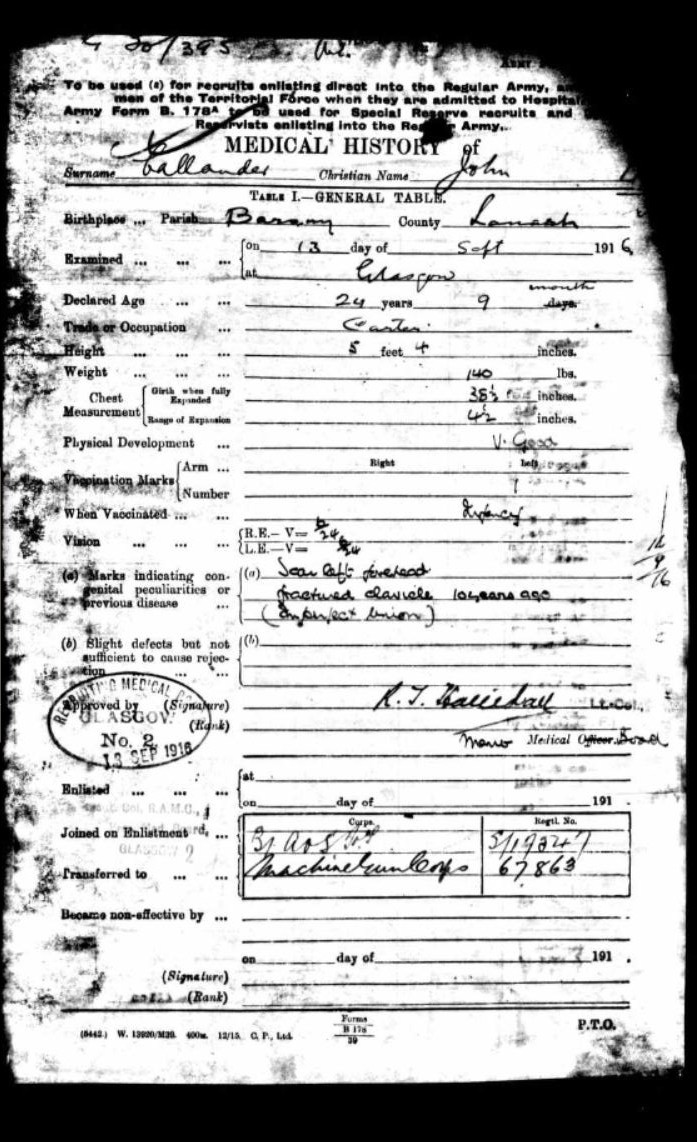 30/395
ARMY
To be used (a) for recruits enlisting direct into the Regular Army, an
men of the Territorial Force when they are admitted to Hospital
Army Form B. 178A to be used for Special Reserve recruits and
Reservists enlisting into the Regular Army.
MEDICAL HISTORY of
Surname Callander Christian Name John
TABLE I.—GENERAL TABLE.
Birthplace ... Parish County Lanark
Examined ... ... ... on 13 day of Sept 1916
at Glasgow
month
Declared Age ... ... 24 years 9 days.
Trade or Occupation ... Carter.
Height ... ... ... 5 feet 4 inches.
Weight ... ... ... 140 lbs.
Chest Measurement Girth when fully Expanded 38½ inches.
Range of Expansion 4½ inches.
Physical Development ... V. Good
Right Left
Vaccination Marks Arm ...
Number 1
When Vaccinated ... ... Infancy
Vision ... ... ... R.E.—V= 6/24
L.E.—V= 6/24
(a) Marks indicating con- (a) Scar left forehead
genital peculiarities or fractured clavicle 10 years ago
previous disease ... (Imperfect Union)
(b) Slight defects but not (b)
sufficient to cause rejec-
tion ... ...
RECRUITING MEDICAL
GLASGOW.
No. 2
13 SEP 1916
Approved by (Signature) R. T. Halliday Lt-Col.,
(Rank)
Medical Officer Board
Enlisted ... ... ... at
on day of 191 .
Corps. Regtl. No.
Joined on Enlistment ... 3/ A & S
Transferred to ... ... Machine Gun Corps 67863
Became non-effective by ...
on day of 191 .
(Signature)
(Rank)
(5442.) W. 13920/M39. 400m. 12/15. C. P., Ltd.
Forms
B 178
39
P.T.O.